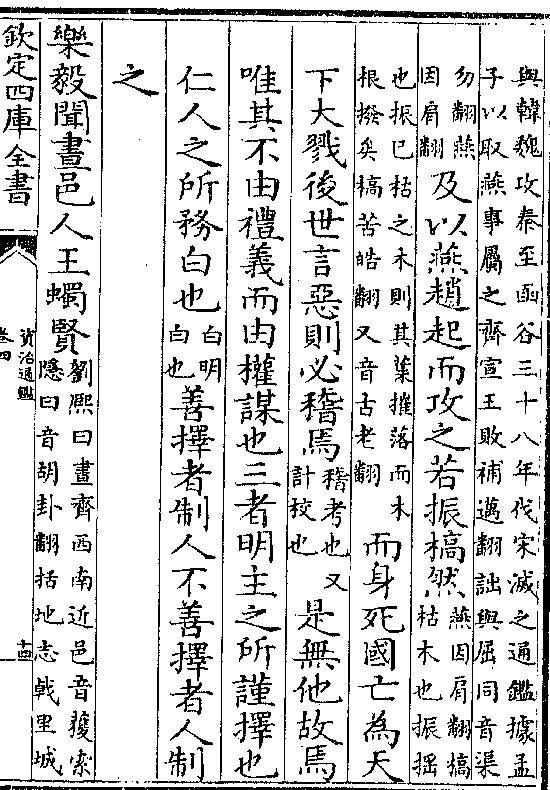 與韓魏攻秦至函谷三十八年伐宋滅之通鑑據孟
子以取燕事屬之齊宣王敗補邁翻詘與屈同音渠
勿翻燕
因肩翻
及以燕趙起而攻之若振槁然
燕因肩翻槁
枯木也振揺
也振已枯之木則其葉摧落而木
根撥矣槁苦皓翻又音古老翻
而身死國亡為天
下大戮後世言惡則必稽焉
稽考也又
計校也
是無他故焉
唯其不由禮義而由權謀也三者明主之所謹擇也
仁人之所務白也
白明
白也
善擇者制人不善擇者人制
之
樂毅聞晝邑人王蠋賢
劉熙曰晝齊西南近邑音獲索
隱曰音胡卦翻括地志戟里城
欽定四庫全書
資治通鑑
卷四
十四